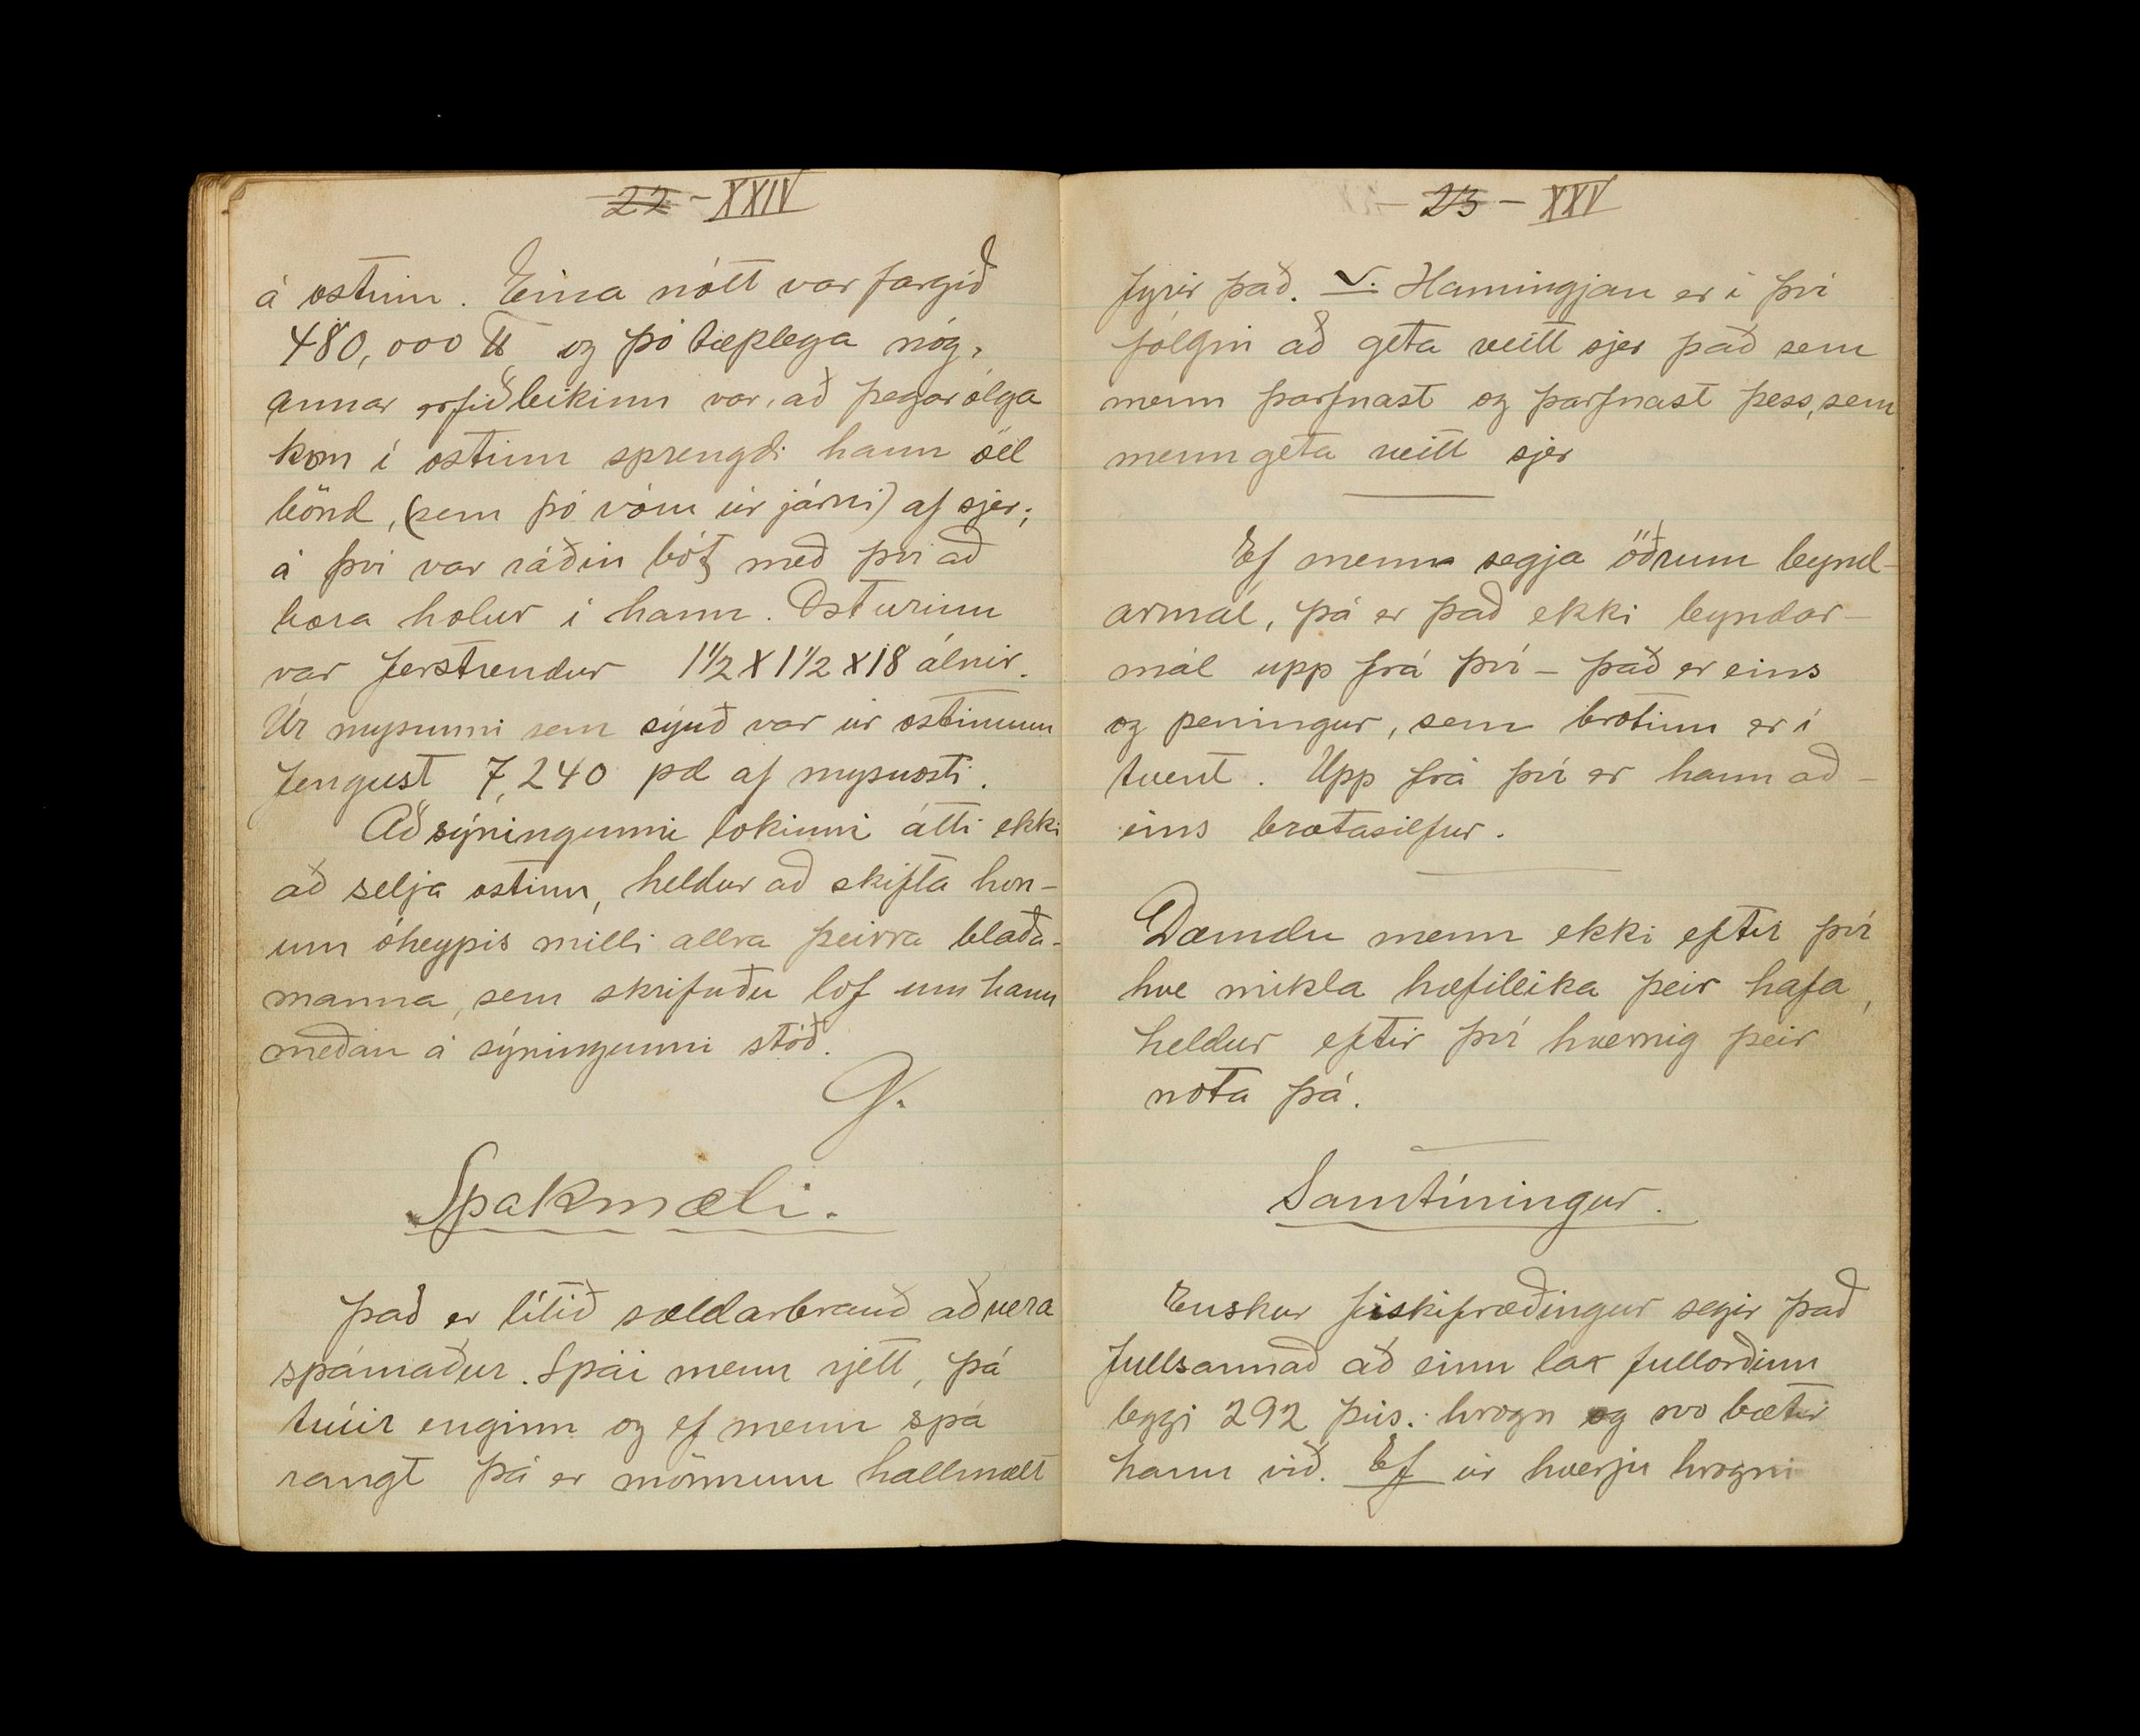 22 - XXIV
á ostinn. Eina nótt var fargið
480,000 ℔ og þó tæplega nóg,
annar erfiðleikinn var, að þegar ólga
kom í ostinn sprengdi hann öll
bönd, (sem þó vóru úr járni) af sjer;
á því var ráðin bót með því að
bora holur í hann. Osturinn
var ferstrendur 1½ X 1½ X 18 álnir.
Úr mysunni sem sýuð var úr ostinum
fengust 7,240 pd af mysuosti.
Að sýningunni lokinni átti ekki
að selja ostinn, heldur að skifta hon-
um óheypis milli allra þeirra blaða-
manna, sem skrifuðu lof um hann
meðan á sýningunni stóð.
G.
Spakmæli.
Það er lítið sældarbrauð að vera
spámaður. Spái menn rjett, þá
trúir enginn og ef menn spá
rangt þá er mönnum hallmælt
- 23 - XXV
fyrir það. Hamingjan er í því
fólgin að geta veitt sjer það sem
menn þarfnast og þarfnast þess, sem
menn geta veitt sjer
Ef menn segja öðrum leynd-
armál, þá er það ekki leyndar-
mál upp frá því - það er eins
og peningur, sem brotinn er í
tvent. Upp frá því er hann að-
eins brotasilfur.
Dæmdu menn ekki eftir því
hve mikla hæfileika þeir hafa,
heldur eftir því hvernig þeir
nota þá.
Samtíningur.
Enskur fiskifræðingur segir það
fullsannað að einn lax fullorðinn
leggi 292 þús. hrogn og svo bætir
hann við. Ef úr hverju hrogni